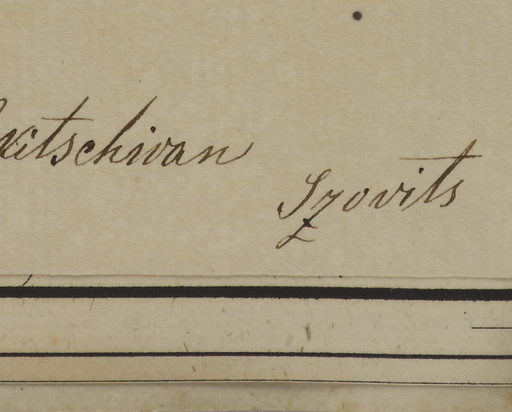 xitschivan
Szovits